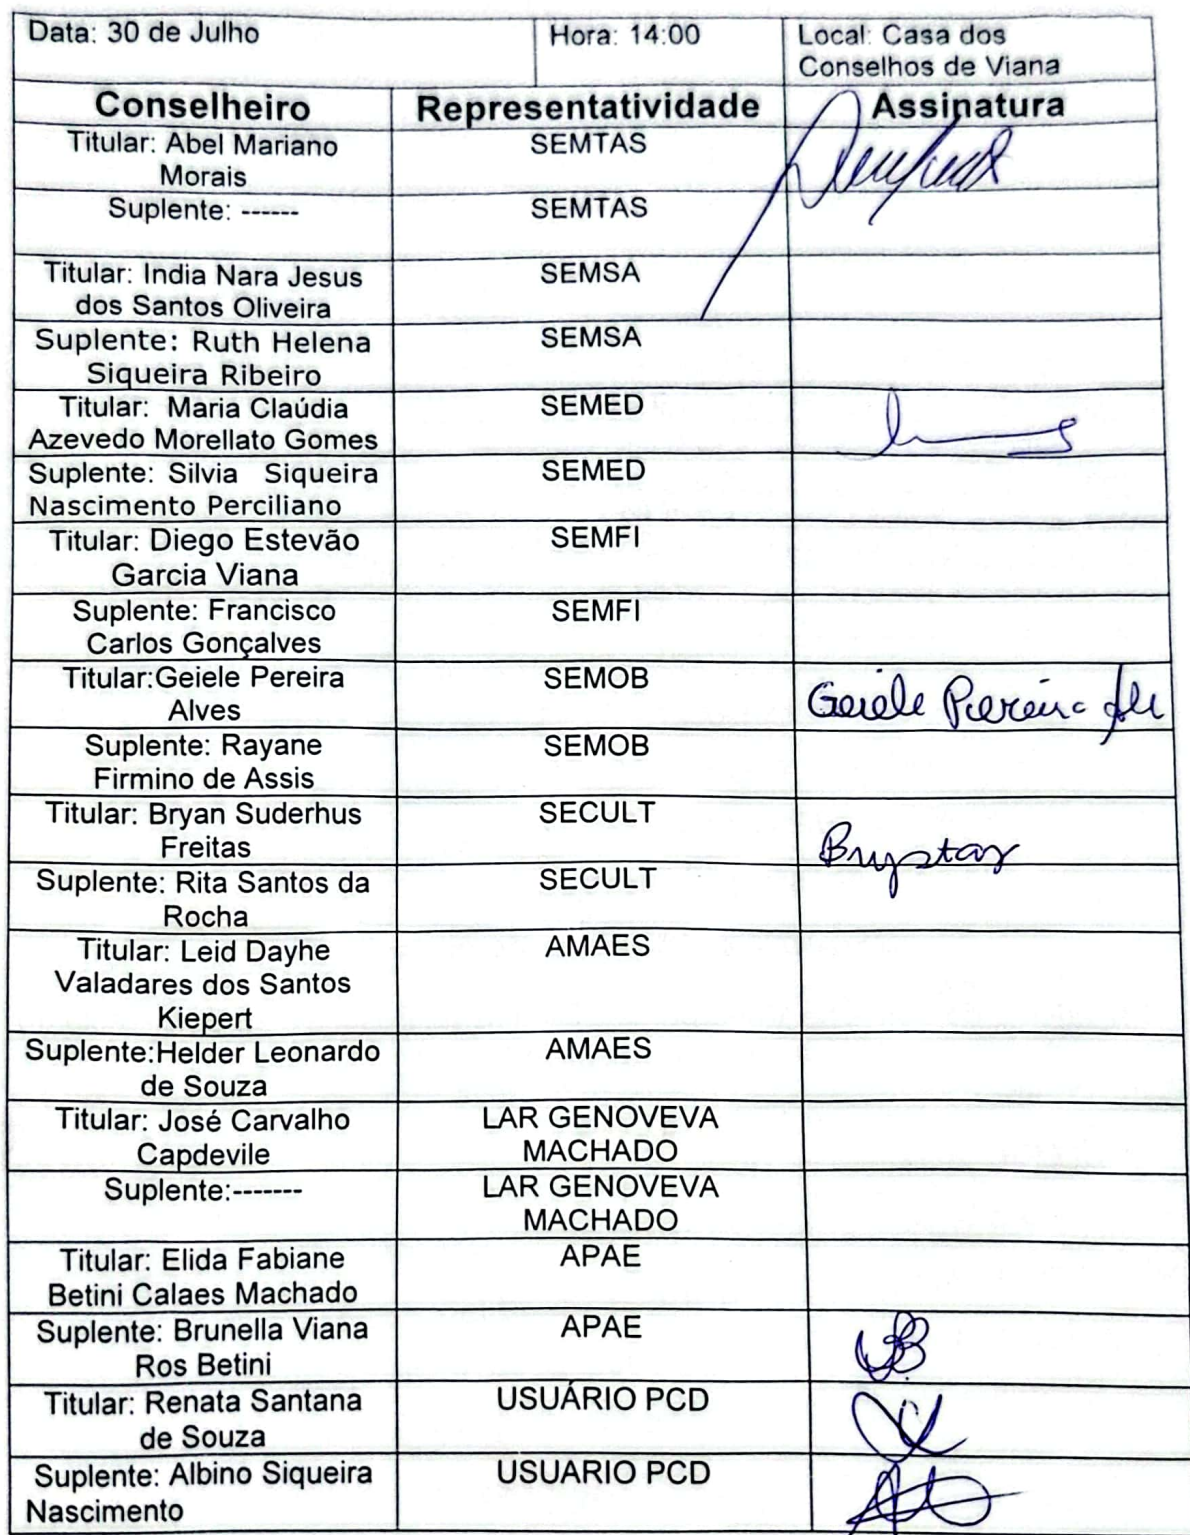 Data: 30 de Julho
Hora: 14:00
Local: Casa dos
Conselhos de Viana
Conselheiro
Representatividade
Assinatura
Titular: Abel Mariano
Morais
SEMTAS
Suplente: ------
SEMTAS
Titular: India Nara Jesus
dos Santos Oliveira
SEMSA
Suplente: Ruth Helena
Siqueira Ribeiro
SEMSA
Titular: Maria Claúdia
Azevedo Morellato Gomes
SEMED
Suplente: Silvia Siqueira
Nascimento Perciliano
SEMED
Titular: Diego Estevão
Garcia Viana
SEMFI
Suplente: Francisco
Carlos Gonçalves
SEMFI
Titular:Geiele Pereira
Alves
SEMOB
Geiele Pereira
Suplente: Rayane
Firmino de Assis
SEMOB
Titular: Bryan Suderhus
Freitas
SECULT
Suplente: Rita Santos da
Rocha
SECULT
Titular: Leid Dayhe
Valadares dos Santos
Kiepert
AMAES
Suplente:Helder Leonardo
de Souza
AMAES
Titular: José Carvalho
Capdevile
LAR GENOVEVA
MACHADO
Suplente:-------
LAR GENOVEVA
MACHADO
Titular: Elida Fabiane
Betini Calaes Machado
APAE
Suplente: Brunella Viana
Ros Betini
APAE
Titular: Renata Santana
de Souza
USUÁRIO PCD
Suplente: Albino Siqueira
Nascimento
USUARIO PCD